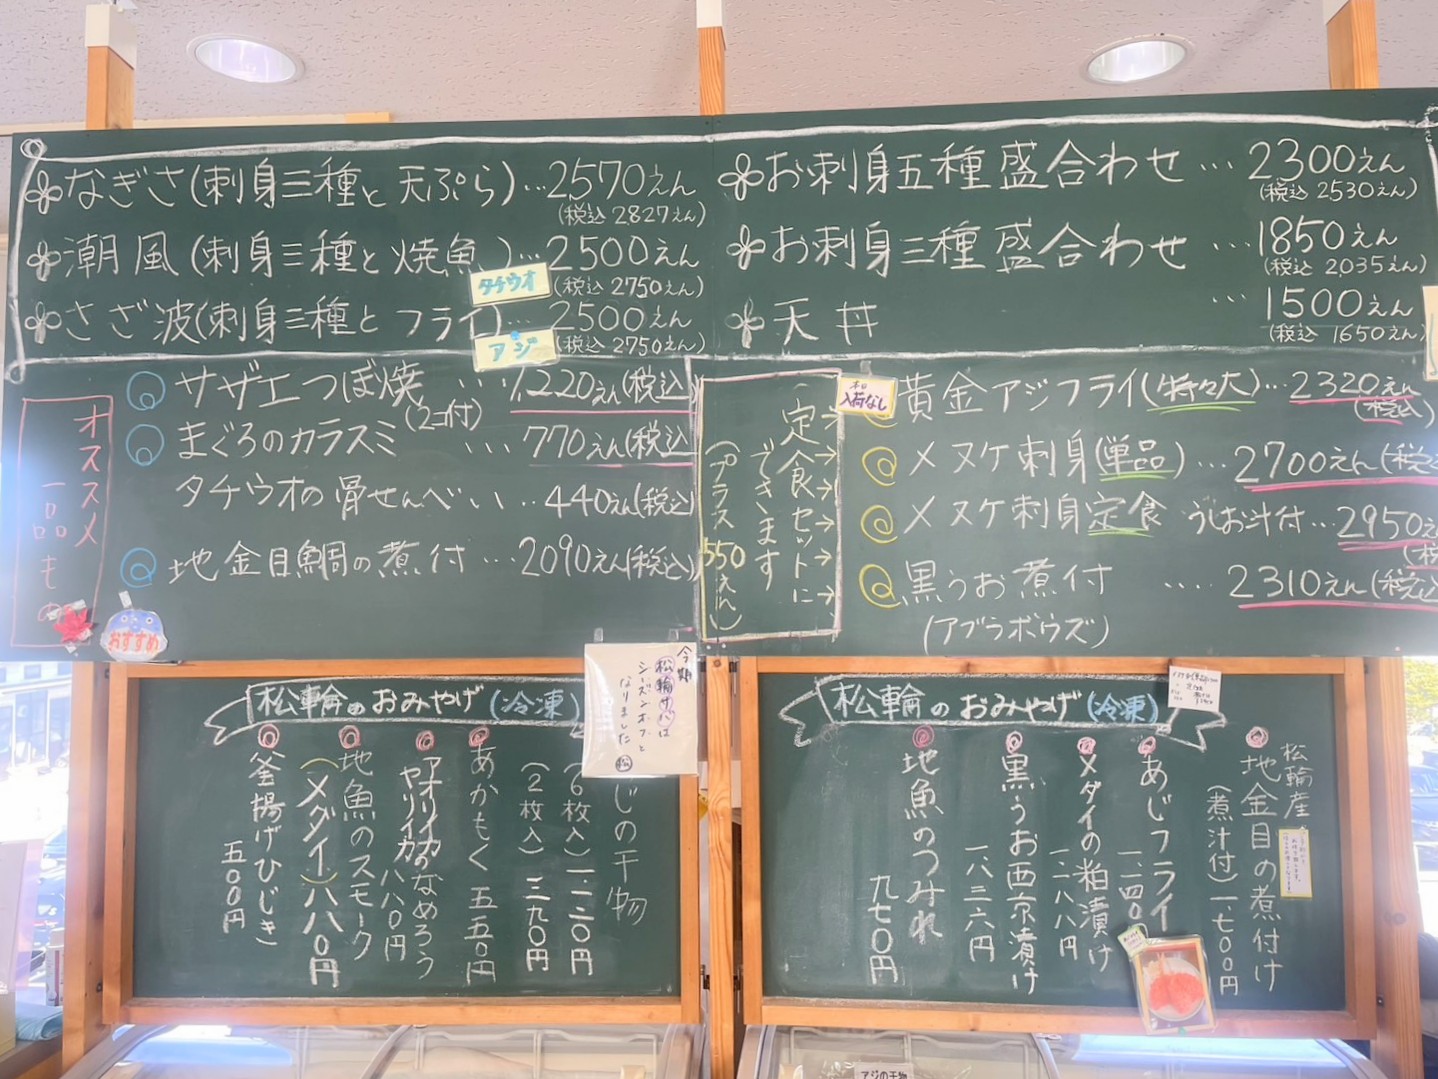 なぎさ(刺身三種と天ぷら)…2570えん
(税込 2827えん)
潮風(刺身三種と焼魚)…2500えん
タチウオ
(税込 2750えん)
さざ波(刺身三種とフライ)…2500えん
アジ
(税込 2750えん)
お刺身五種盛合わせ…2300えん
(税込 2530えん)
お刺身三種盛合わせ…1850えん
(税込 2035えん)
天丼…1500えん
(税込 1650えん)
オススメ
一品もの
おすすめ
サザエつぼ焼…1,220えん(税込
(2コ付)
まぐろのカラスミ…770えん(税込
タチウオの骨せんべい…440えん(税込)
地金目鯛の煮付…2090えん(税込)
定食セットに
できます
(プラス550えん)
本日
入荷なし
黄金アジフライ(特々大)…2320えん
(税込)
メヌケ刺身(単品)…2700えん(税込
メヌケ刺身定食 うしお汁付…2950えん
(税
黒うお煮付…2310えん(税込
(アブラボウズ)
今期
松輪サバは
シーズンオフと
なりました
松
松輪のおみやげ(冷凍)
じの干物
(6枚入)一、一三〇円
(2枚入)三九〇円
あかもく 五五〇円
アオリイカのなめろう
ヤリイカ 八八〇円
地魚のスモーク
(メダイ)八八〇円
釜揚げひじき
五〇〇円
松輪のおみやげ(冷凍)
松輪産
地金目の煮付け
(煮汁付)一、七〇〇円
あじフライ
一、二四〇
メダイの粕漬け
一、二八八円
黒うお西京漬け
一、八三六円
地魚のつみれ
九七〇円
アジの干物